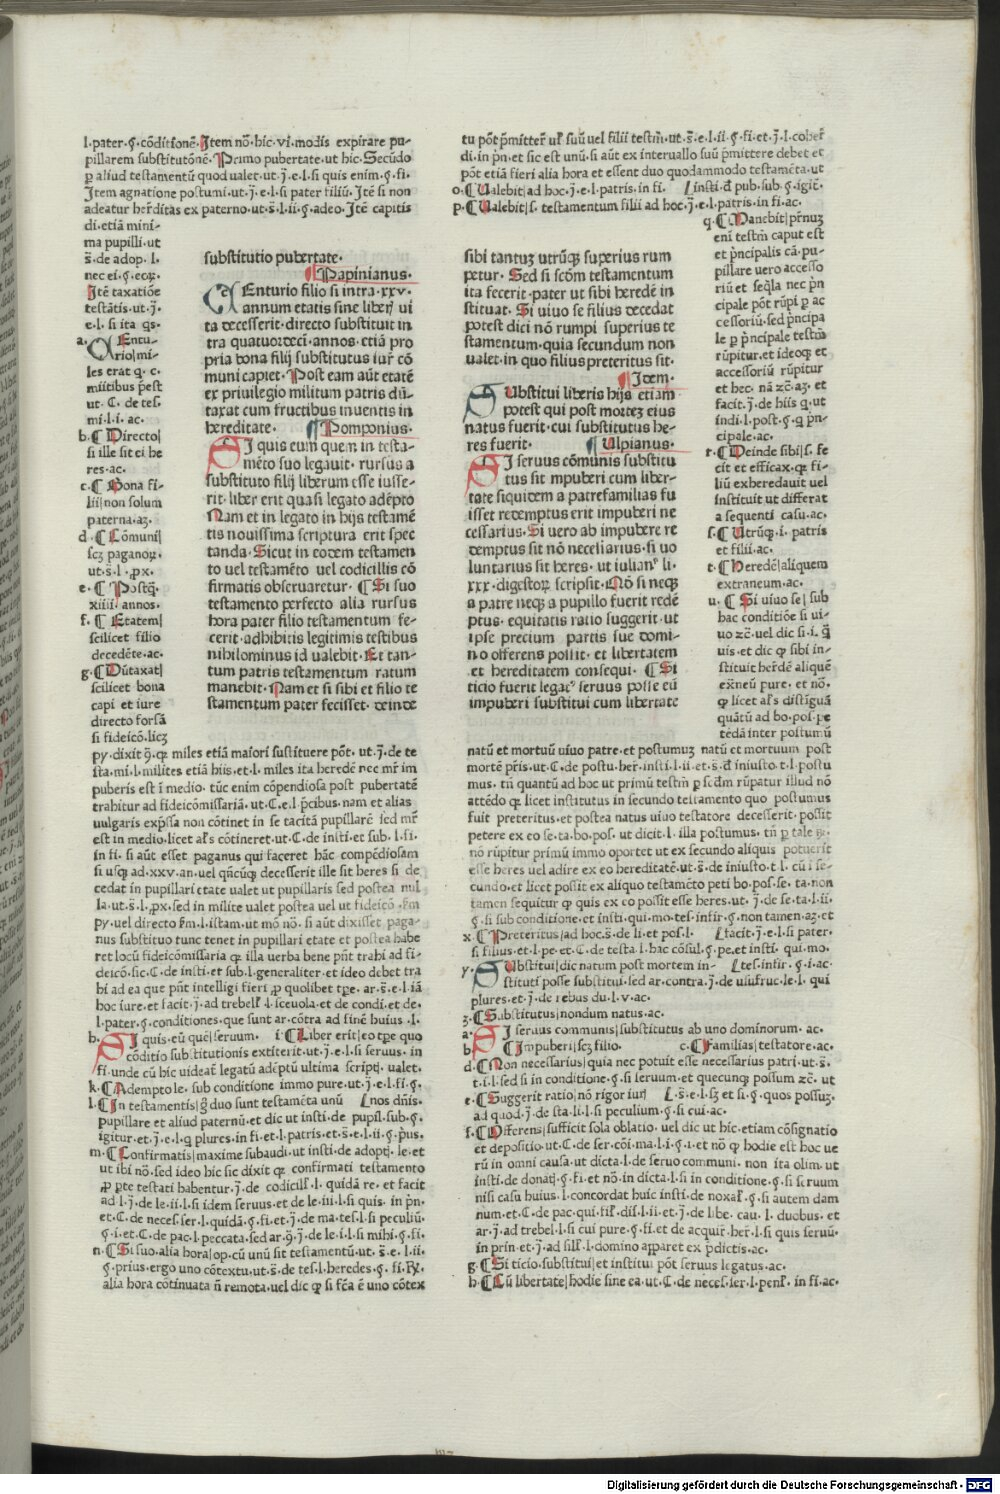 l.pater.§.cōditionē.Item nō.hic.vi.modis expirare pu-
pillarem substitutōnē.Primo pubertate.ut hic.Secūdo
ꝑ aliud testamentū quod valet.ut.j̄.e.l.si quis enim.§.fi.
Item agnatione postumi.ut.j̄.e.l.si pater filiū.Itē si non
adeatur her̄ditas ex paterno.ut.s̄.l.ii.§.adeo.Itē capitis
di.etiā mini-
ma pupilli.ut
s̄.de adop.l.
nec ei.§.eoꝝ.
Itē taxatiōe
testātis.ut.j̄.
e.l.si ita qs.
a. Centu-
rio|mi-
les erat q.c.
miitibus p̄est
ut.C.de tes.
mi.l.i.ac.
b.¶Directo|
si ille sit ei he
res.ac.
c.¶Bona fi-
lii|non solum
paterna.aʒ.
d.¶Cōmuni|
scʒ paganoꝝ.
ut.s̄.l.ꝓx.
e.¶Postq̄.
xiiii.annos.
f.¶Etatem|
scilicet filio
decedēte.ac.
g.¶Dūtaxat|
scilicet bona
capi et iure
directo forsā
si fideicō.licʒ
substitutio pubertate.
¶Papinianus.
CEnturio filio si intra.xxv.
annum etatis sine liber̄ vi
ta decesserit.directo substituit in
tra quatuordeci.annos.etiā pro
pria bona filij substitutus iur̄ cō
muni capiet.Post eam aūt etatē
ex privilegio militum patris dū-
taxat cum fructibus inventis in
hereditate. ¶Pomponius.
SI quis eum quem in testa-
mēto suo legavit.rursus a
substituto filij liberum esse iusse-
rit.liber erit quasi legato adēpto
Nam et in legato in hijs testamē
tis novissima scriptura erit spec
tanda.Sicut in eodem testamen
to vel testamēto vel codicillis cō
firmatis observaretur. ¶Si suo
testamento perfecto alia rursus
hora pater filio testamentum fe-
cerit.adhibitis legitimis testibus
nihilominus id valebit.Et tan-
tum patris testamentum ratum
manebit.Nam et si sibi et filio te
stamentum pater fecisset.deinde
py.dixit ꝙ.qꝫ miles etiā maiori sustituere pōt.ut.j̄.de te
sta.mi.l.milites etiā hiis.et.l.miles ita heredē nec mr̄ im
puberis est ī medio.tūc enim cōpendiosa post pubertatē
trahitur ad fideicōmissariā.ut.C.e.l.p̄cibus.nam et alias
vulgaris exp̄ssa non cōtinet in se tacitā pupillarē sed mr̄
est in medio.licet al's cōtineret.ut.C.de insti.et sub.l.fi.
in fi.si aūt esset paganus qui faceret hāc compēdiosam
si usqꝫ ad.xxv.an.vel qn̄cūqꝫ decesserit ille sit heres si de
cedat in pupillari etate valet ut pupillaris sed postea nul
la.ut.s̄.l.ꝓx.sed in milite valet postea vel ut fideicō.f̄m
py.vel directo f̄m.l.istam.ut mō nō.si aūt dixisset paga-
nus substituo tunc tenet in pupillari etate et postea habe
ret locū fideicōmissaria qꝫ illa verba bene pn̄t trahi ad fi-
deicō.sic.C.de insti.et sub.l.generaliter.et ideo debet tra
hi ad ea que pn̄t intelligi fieri ꝓ quolibet tꝑe.ar.s̄.e.l.iā
hoc iure.et facit.j̄.ad trebell'.l.scevola.et de condi.et de.
l.pater.§.conditiones.que sunt ar.cōtra ad finē huius.l.
h. SI quis.eū quē|servum. i.¶Liber erit|eo tꝑe quo
cōditio substitutionis extiterit.ut.j̄.e.l.si servus.in
fi.unde cū hic videat̄ legatū adēptū ultima scriptj.valet.
k.¶Adempto|e.sub conditione immo pure.ut.j̄.e.l.fi.§.
l.¶In testamentis|ꝗ duo sunt testamēta unū [nos dn̄is.
pupillare et aliud paternū.et dic ut insti.de pupil.sub.§.
igitur.et.j̄.e.l.q plures.in fi.et.l.patris.et.s̄.e.l.ii.§.p̄us.
m.¶Confirmatis|maxime subaudi.ut insti.de adoptj.le.et
ut ibi nō.sed ideo hic sic dixit qꝫ confirmati testamento
ꝓ ꝑte testati habentur.j̄.de codicill'.l.quidā re.et facit
ad.l.j̄.de le.ii.l.si idem servus.et de le.iii.l.si quis.in p̄n.
et.C.de neces.ser.l.quidā.§.fi.et.j̄.de ma.tes.l.si peculiū.
§.i.et.C.de pac.l.peccata.sed ar.ꝙ.j̄.de le.i.l.si mihi.§.fi.
n.¶Si suo.alia hora|op.cū unū sit testamētū.ut.s̄.e.l.ii.
§.prius.ergo uno cōtextu.ut.s̄.de tes.l.heredes.§.fi.R̄.
alia hora cōtinuata n̄ remota.vel dic qꝫ si fc̄a ē uno cōtex
tu pōt p̄mitter̄ ul' suū vel filii testm̄.ut.s̄.e.l.ii.§.fi.et.j̄.l.coher̄
di.in p̄n.et sic est unū.si aūt ex intervallo suū p̄mittere debet et
pōt etiā fieri alia hora et essent duo quodammodo testamēta.ut
o.¶Valebit|ad hoc.j̄.e.l.patris.in fi. [insti.d̄ pub.sub.§.igit̄.
p.¶Valebit|s.testamentum filii ad hoc.j̄.e.l.patris.in fi.ac.
q.¶Manebit|pr̄nuʒ
eni testm̄ caput est
et p̄ncipalis cā.pu-
pillare vero accesso
riū et seq̄la nec p̄n
cipale pōt rūpi ꝑ ac
cessoriū.sed p̄ncipa
le ꝑ p̄ncipale testm̄
rūpitur.et ideoqꝫ et
accessoriū rūpitur
et hec.nā ⁊c̄.aʒ.et
facit.j̄.de hiis q.ut
indi.l.post.§.q p̄n-
cipale.ac.
r.¶Deinde sibi|s.fe
cit et efficax.qꝫ fi-
liū exheredavit vel
instituit ut differat
a sequenti casu.ac.
s.¶Utrūqꝫ.i.patris
et filii.ac.
t.¶Heredē|aliquem
extraneum.ac.
u.¶Si vivo se|sub
hac conditiōe si vi-
vo ⁊c̄.vel dic si.i.q̄
vis.et dic ꝙ sibi in-
stituit her̄dē aliquē
exn̄eū pure.et nō.
ꝙ licet al's distīguā
quātū ad bo.pos.pe
tēdā inter postumū
sibi tantuʒ utrūqꝫ superius rum
petur.Sed si scōm testamentum
ita fecerit.pater ut sibi heredē in
stituat.Si vivo se filius decedat
potest dici nō rumpi superius te
stamentum.quia secundum non
valet.in quo filius preteritus sit.
¶Idem.
SUbstitui liberis hijs etiam
potest qui post morteʒ eius
natus fuerit.cui substitutus he-
res fuerit. ¶Ulpianus.
SI servus cōmunis substitu
tus sit impuberi cum liber-
tate siquidem a patrefamilias fu
isset redemptus erit impuberi ne
cessarius.Si vero ab impubere re
demptus sit nō necessarius.si vo
luntarius sit heres.ut iulian' li.
xxx.digestoꝝ scripsit.Nō si neqꝫ
a patre neqꝫ a pupillo fuerit redē
ptus.equitatis ratio suggerit.ut
ipse precium partis sue domi-
no offerens possit.et libertatem
et hereditatem consequi. ¶Si
ticio fuerit legat' servus posse eū
impuberi substitui cum libertate
natū et mortuū vivo patre.et postumuʒ natū et mortuum post
mortē pr̄is.ut.C.de postu.her̄.insti.l.ii.et.s̄.d̄ iniusto.t.l.postu
mus.tn̄ quantū ad hoc ut primū testm̄ ꝑ scd̄m rūpatur illud nō
attēdo qꝫ licet institutus in secundo testamento quo postumus
fuit preteritus.et postea natus vivo testatore decesserit.possit
petere ex eo se.ta.bo.pos.ut dicit.l.illa postumus.tn̄ ꝑ tale ⁊c̄.
nō rūpitur primū immo oportet ut ex secundo aliquis potuerit
esse heres vel adire ex eo hereditatē.ut.s̄.de iniusto.t.l.cū i se-
cundo.et licet possit ex aliquo testamēto peti bo.pos.se.ta.non
tamen sequitur ꝙ quis ex eo possit esse heres.ut.j̄.de se.ta.l.ii.
§.si sub conditione.et insti.qui.mo.tes.infir.§.non tamen.aʒ.et
x.¶Preteritus|ad hoc.s̄.de li.et pos.l. [facit.j̄.e.l.si pater.
s.filius.et.l.pe.et.C.de testa.l.hac cōsul.§.pe.et insti.qui.mo.
y. SUbstitui|dic natum post mortem in- [tes.infir.§.i.ac.
stituti posse substitui.sed ar.contra.j̄.de usufruc.le.l.qui
plures.et.j̄.de rebus du.l.v.ac.
z.¶Substitutus|nondum natus.ac.
a. SI servus communis|substitutus ab uno dominorum.ac.
b. ¶Impuberi|scʒ filio. c.¶Familias|testatore.ac.
d.¶Non necessarius|quia nec potuit esse necessarius patri.ut.s̄.
t.i.l.sed si in conditione.§.si servum.et quecunqꝫ possum ⁊c̄.ut
e.¶Suggerit ratio|nō rigor iur̄ [s̄.e.l.sʒ et si.§.quos possuʒ.
ad quod.j̄.de sta.li.l.si peculium.§.si cui.ac.
f.¶Offerens|sufficit sola oblatio.vel dic ut hic.etiam cōsignatio
et depositio.ut.C.de ser.cōi.ma.l.i.§.i.et nō ꝙ hodie est hoc ve
rū in omni causa.ut dicta.l.de servo communi.non ita olim.ut
insti.de donatj.§.fi.et nō.in dicta.l.si in conditione.§.si servum
nisi casu huius.l.concordat huic insti.de noxal'.§.si autem dam
num.et.C.de pac.qui.fil'.dis̄.l.ii.et.j̄.de libe.cau.l.duobus.et
ar.j̄.ad trebel.l.si cui pure.§.fi.et de acquir̄.her̄.l.si quis servū.
in prin.et.j̄.ad sill'.l.domino apparet ex p̄dictis.ac.
g.¶Si ticio.substitui|et institui pōt servus legatus.ac.
h.¶Cū libertate|hodie sine ea.ut.C.de neces.ser.l.penl'.in fi.ac.
Digitalisierung gefördert durch die Deutsche Forschungsgemeinschaft - DFG